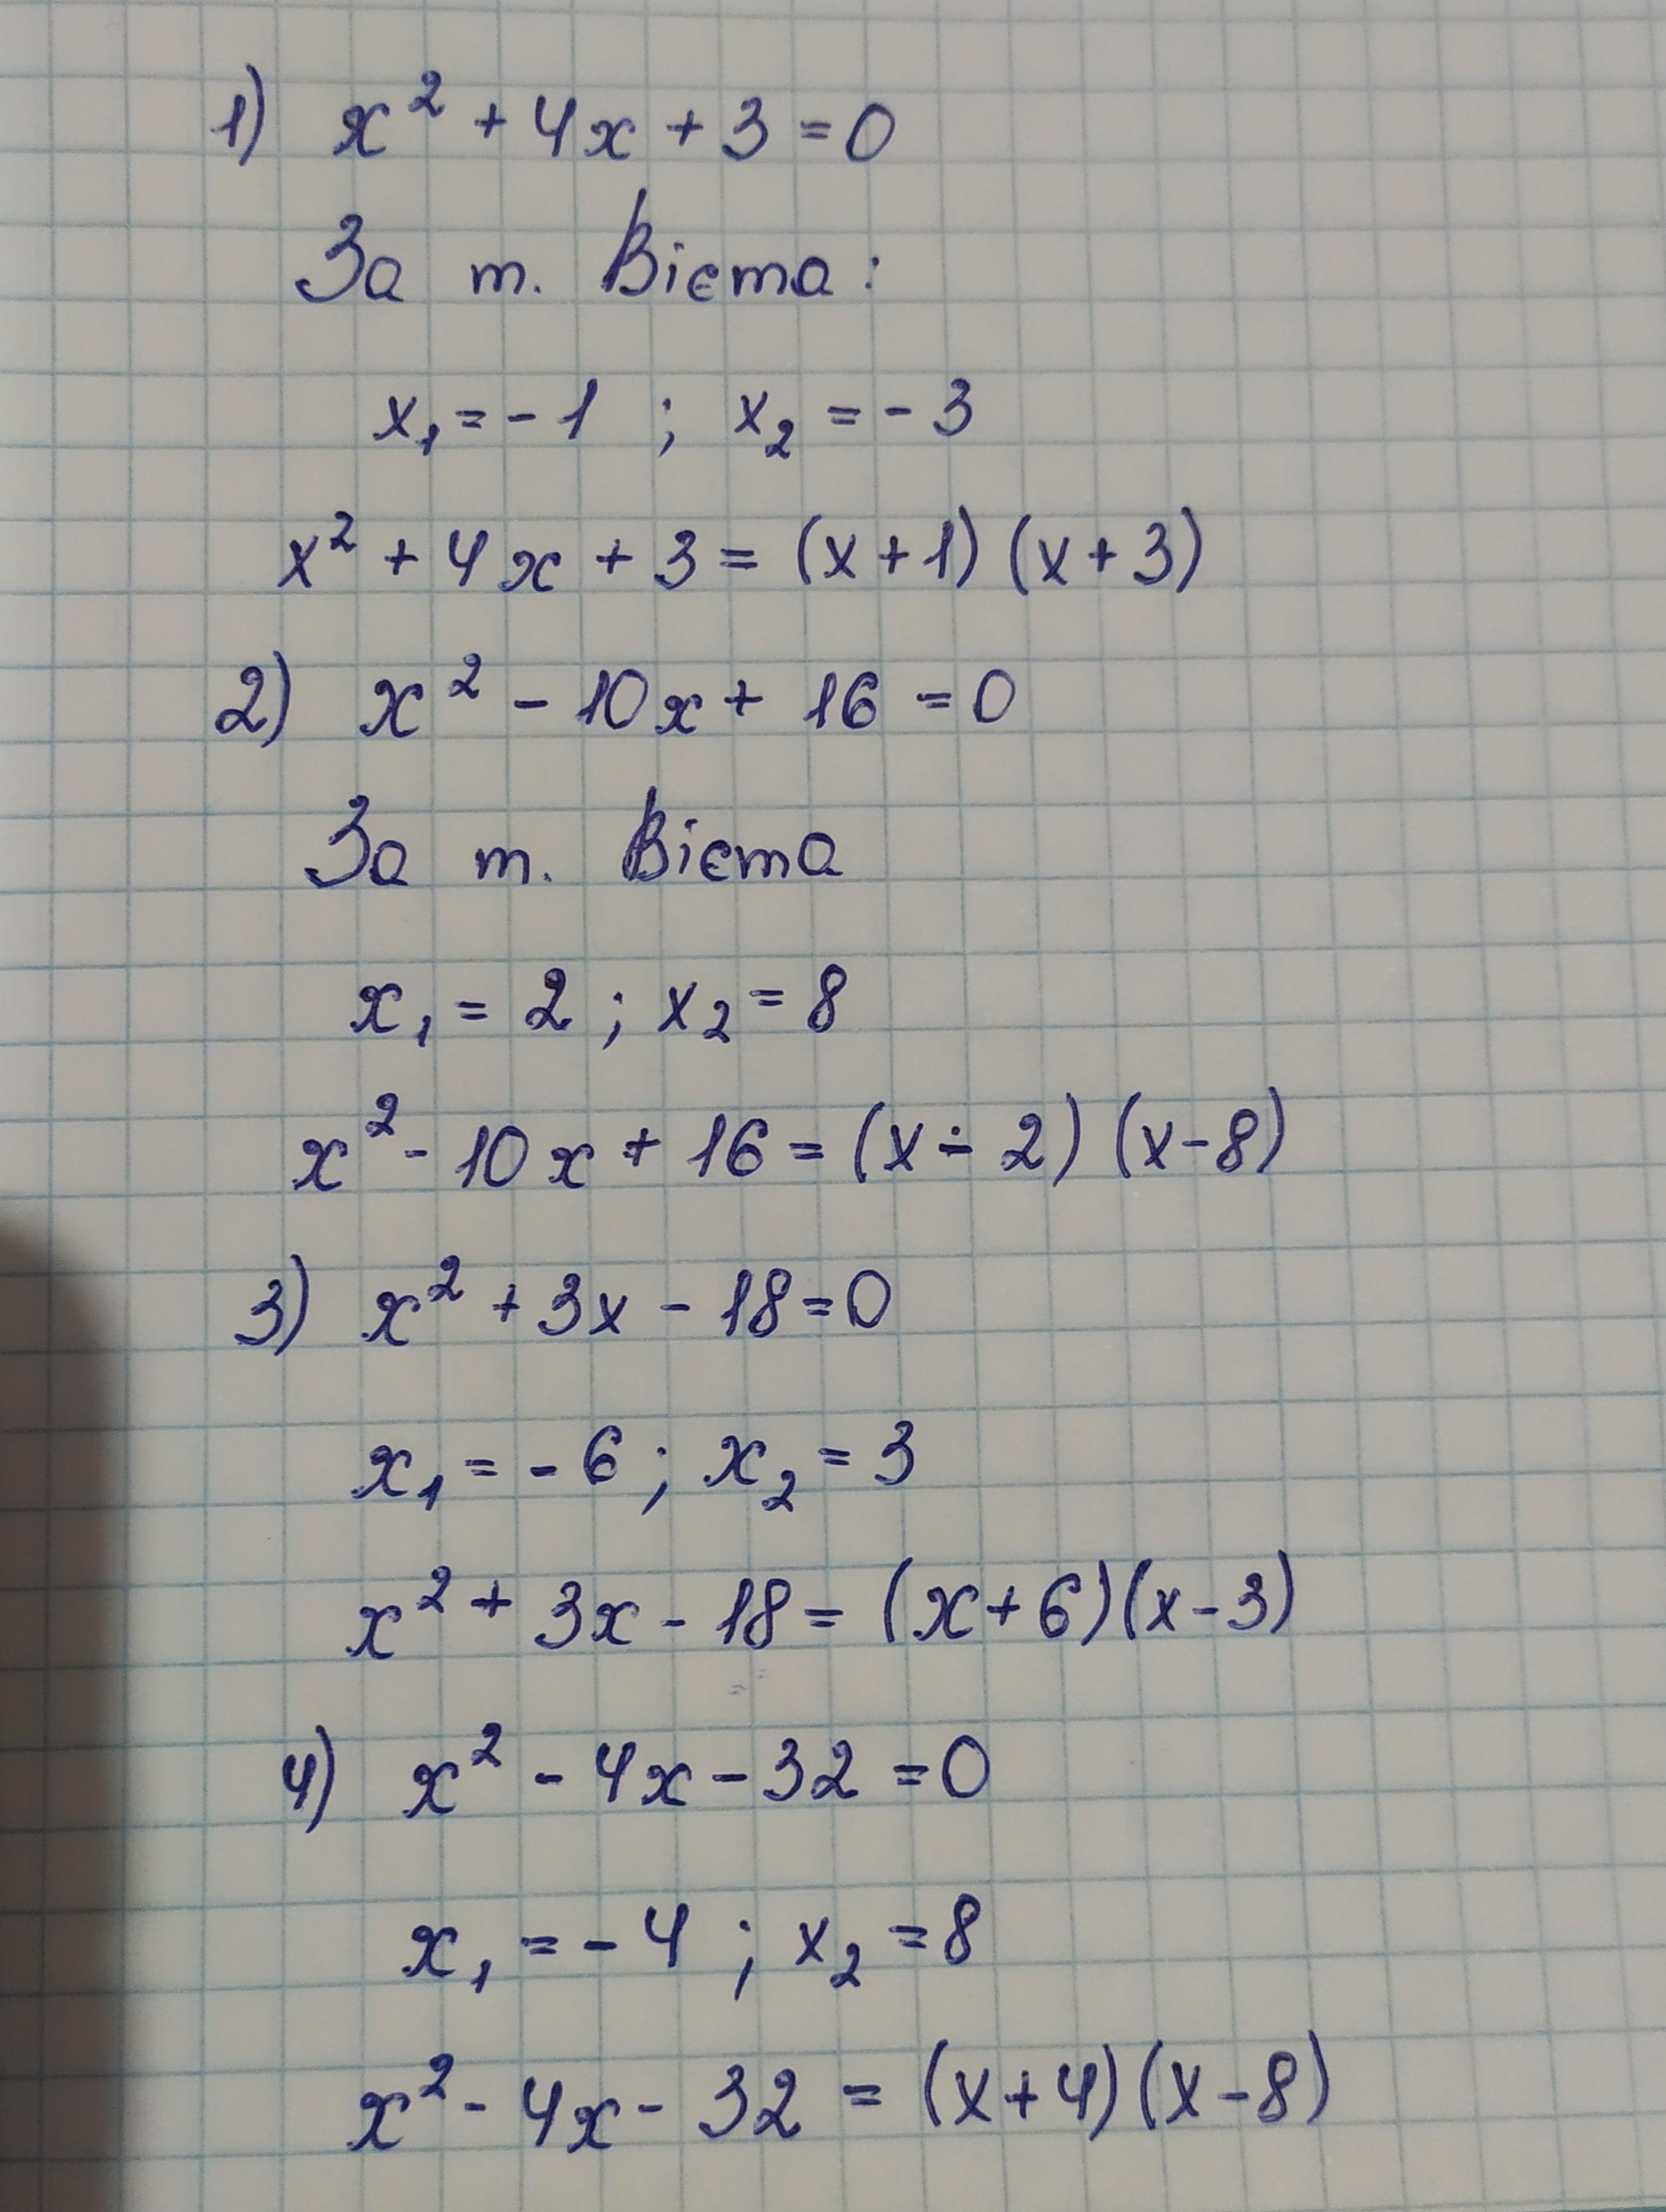 1) x² + 4x + 3 = 0
За т. Вієта:
x₁ = - 1 ; x₂ = - 3
x² + 4x + 3 = (x + 1) (x + 3)
2) x² - 10x + 16 = 0
За т. Вієта
x₁ = 2 ; x₂ = 8
x² - 10x + 16 = (x - 2) (x - 8)
3) x² + 3x - 18 = 0
x₁ = - 6 ; x₂ = 3
x² + 3x - 18 = (x + 6)(x - 3)
4) x² - 4x - 32 = 0
x₁ = - 4 ; x₂ = 8
x² - 4x - 32 = (x + 4)(x - 8)